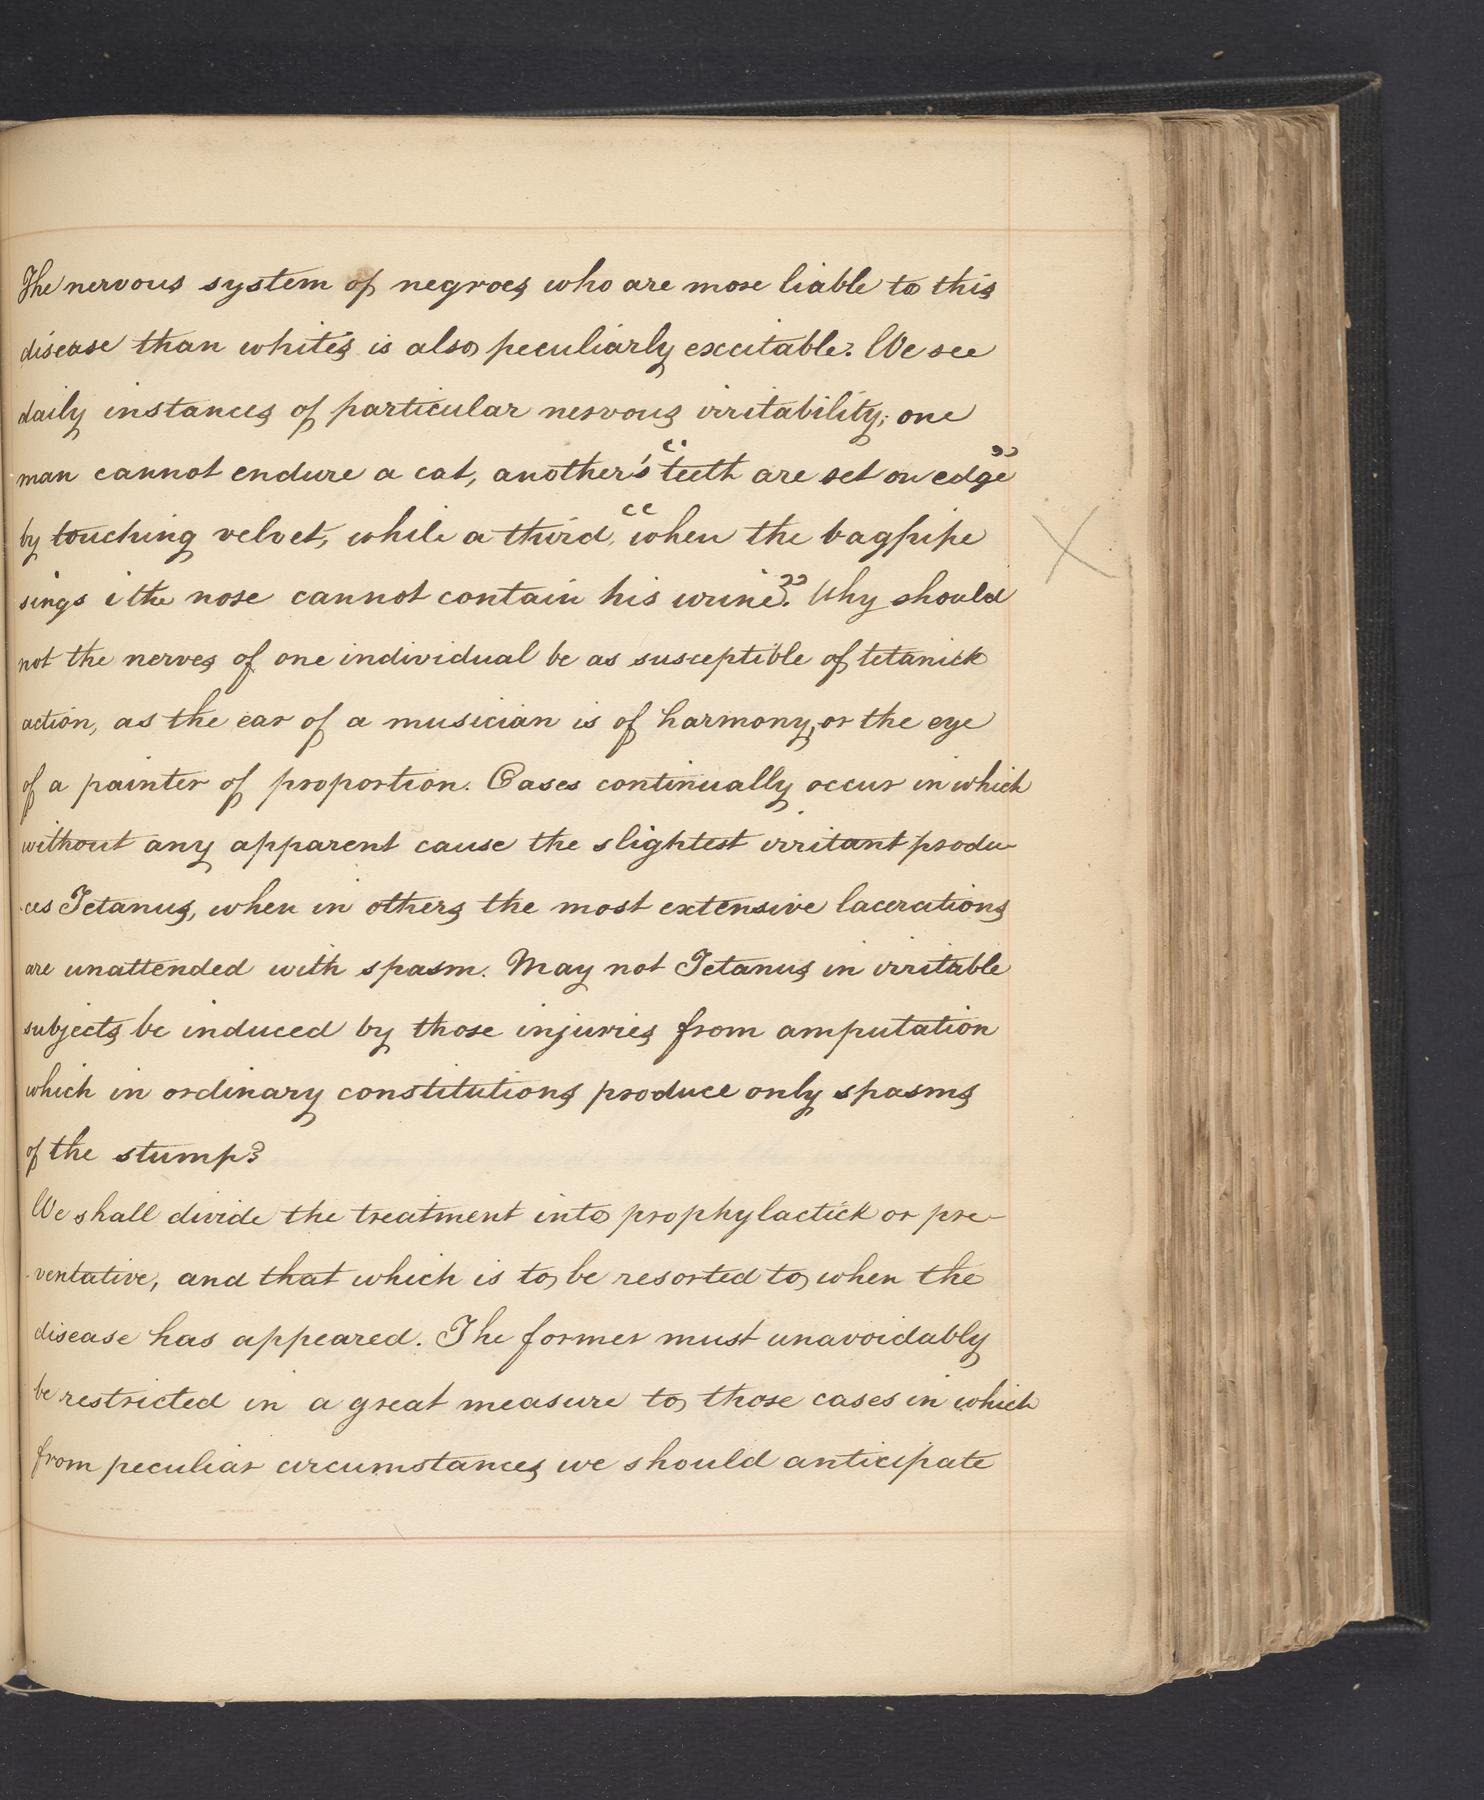 The nervous system of negroes who are more liable to this
disease than whites is also peculiarly excitable. We see
daily instances of particular nervous irritability; one
man cannot endure a cat, another's "teeth are set on edge"
by touching velvet, while a third, "when the bagpipe
sings i the nose cannot contain his urine." Why should
not the nerves of one individual be as susceptible of tetanick
action, as the ear of a musician is of harmony, or the eye
of a painter of proportion. Cases continually occur in which
without any apparent cause the slightest irritant produ-
-ces Tetanus, when in others the most extensive lacerations
are unattended with spasm. May not Tetanus in irritable
subjects be induced by those injuries from amputation
which in ordinary constitutions produce only spasms
of the stump?
We shall divide the treatment into prophylactick or pre-
-ventative, and that which is to be resorted to when the
disease has appeared. The former must unavoidably
be restricted in a great measure to those cases in which
from peculiar circumstances we should anticipate